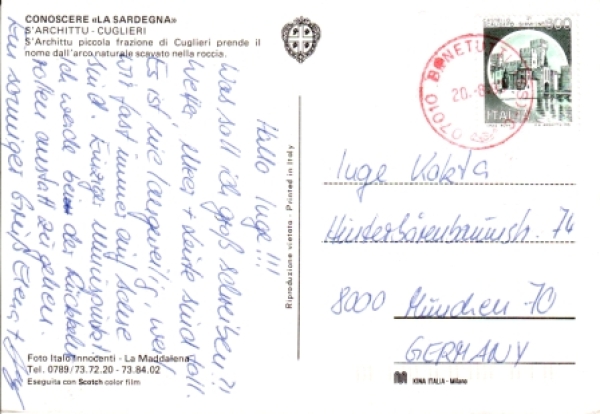 CONOSCERE «LA SARDEGNA»
S'ARCHITTU - CUGLIERI
S'Archittu piccola frazione di Cuglieri prende il
nome dall'arco naturale scavato nella roccia.
Hallo Inge!!!
Was soll ich groß schreiben?!
Wetter, Meer + Leute sind toll.
Es ist nie langweilig, weil
wir fast immer auf
sind. Einziger Minuspunkt
ich werde bei der Rückkehr
rollen anstatt zu gehen.
Ein sonniger Gruß
Foto Italo Innocenti - La Maddalena
Tel. 0789/73.72.20 - 73.84.02
Eseguita con Scotch color film
Riproduzione vietata - Printed in Italy
800
ITALIA
07010 BONE
20.-8.
Inge
Hinterbärenbadstr. 74
8000 München 70
GERMANY
KINA ITALIA - Milano